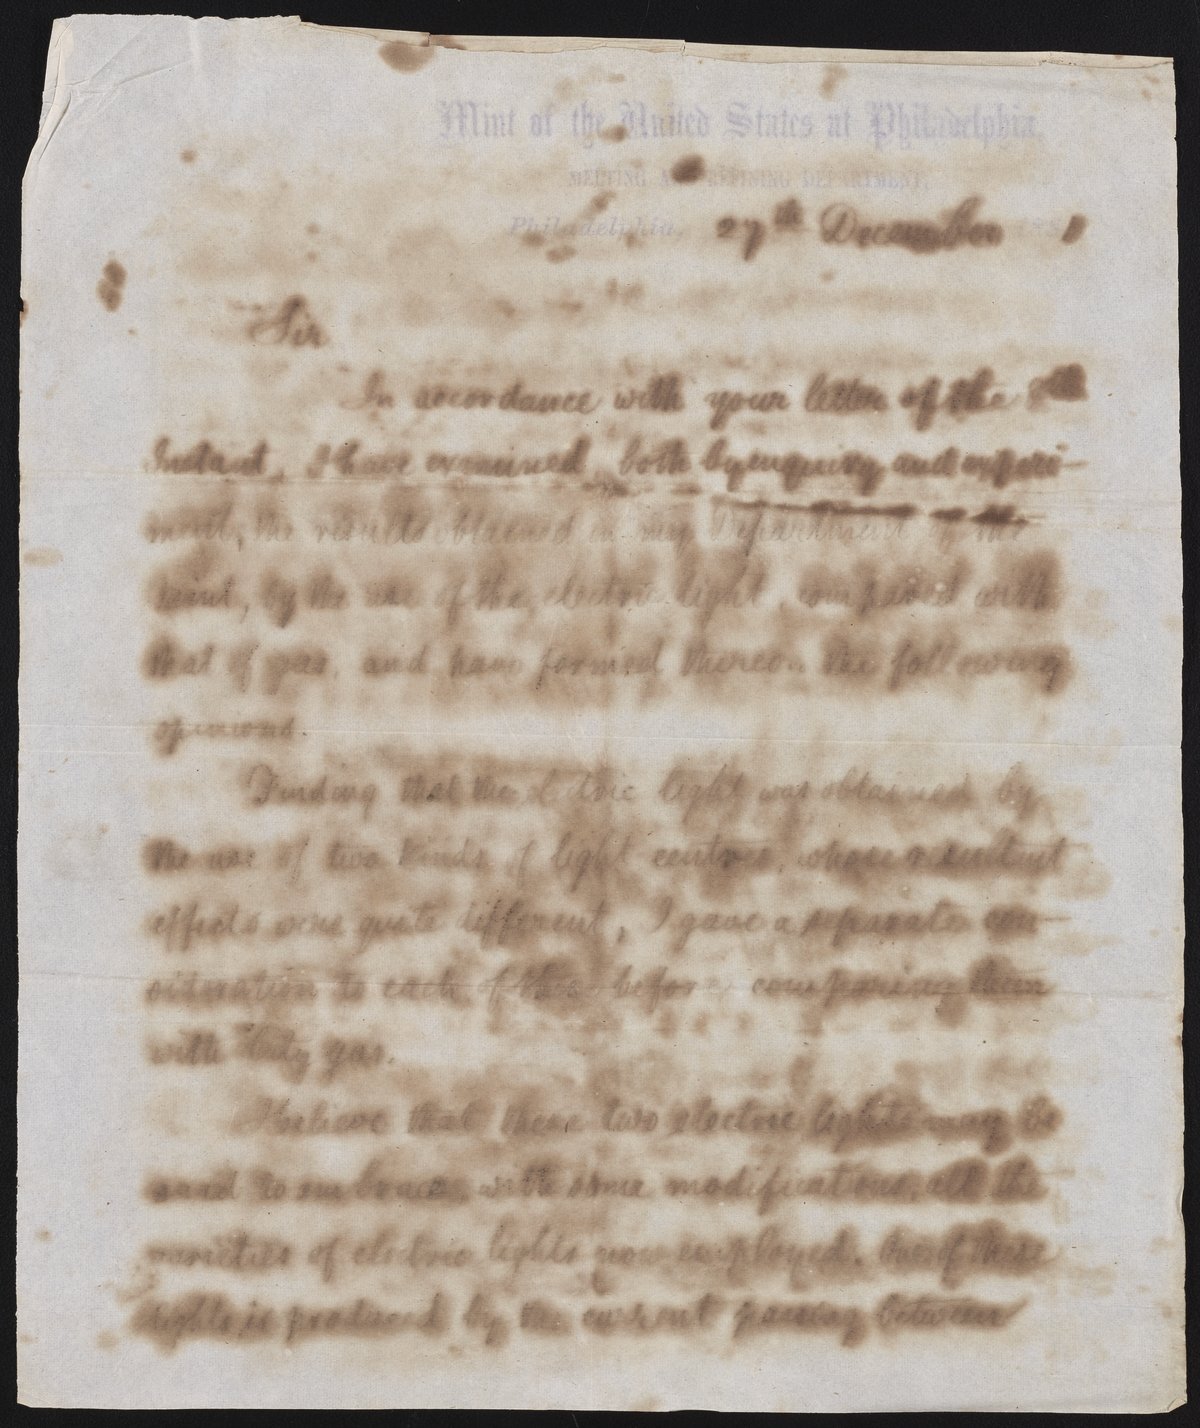 Mint of the United States at Philadelphia.
MELTING AND REFINING DEPARTMENT,
Philadelphia, 27th December 188 1
Sir
In accordance with your letter of the
Instant, I have examined, both by enquiry and experi-
ment, the results obtained in my Department of the
mint, by the use of the electric light, compared with
that of gas, and have formed thereon the following
opinions.
Finding that the electric light was obtained by
the use of two kinds of light centres, whose resultant
effects were quite different, I gave a separate con-
sideration to each of these before comparing them
with City gas.
I believe that these two electric lights may be
said to embrace, with some modifications, all the
varieties of electric lights now employed. One of these
lights is produced by the current passing between